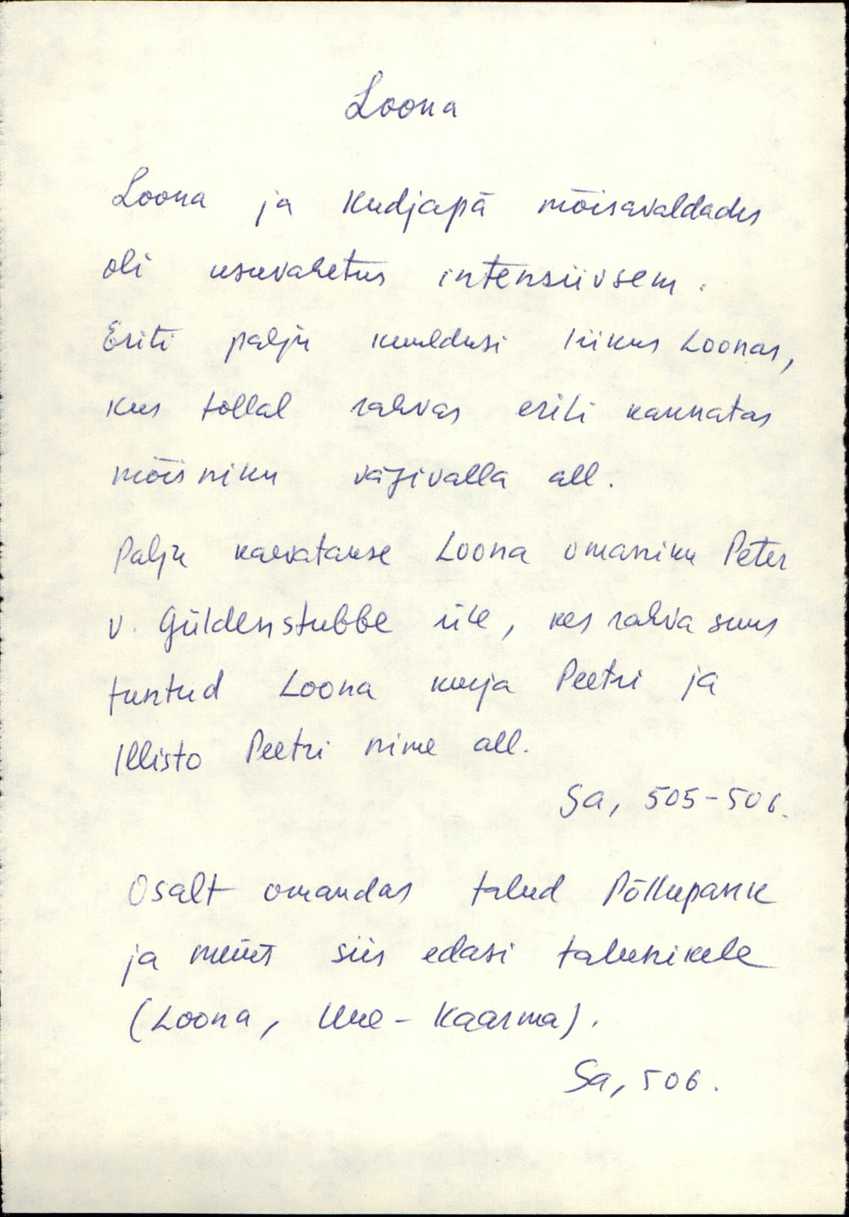 Loona
Loona ja Kudjapä mõisavaldades
oli usuvahetus intensiivsem.
Eriti palju kuuldusi liikus Loonas,
kus tollal rahvas eriti kannatas
mõisniku vägivalla all.
Palju kaevatakse Loona omaniku Peter
v. Güldenstubbe üle, kes rahva suus
tuntud Loona kurja Peetri ja
Illisto Peetri nime all.
Sa, 505-506.
Osalt omandas talud Põllupank
ja müüs siis edasi talunikele
(Loona, Uue-Kaarma).
Sa, 506.